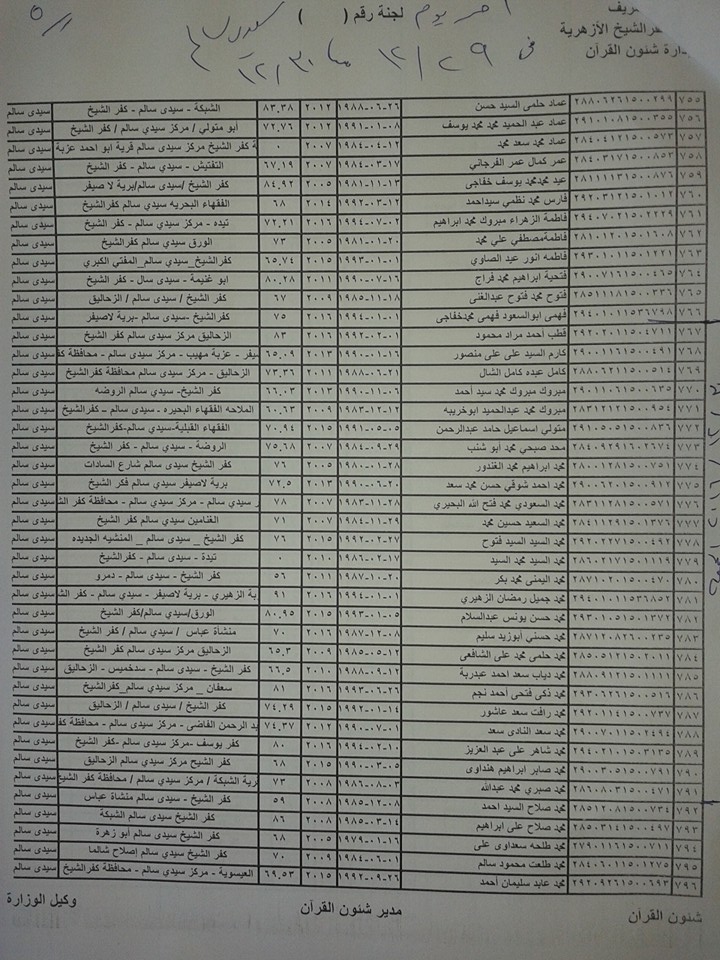 ريف
لجنة رقم ( )
رالشيخ الأزهرية
دارة شئون القرآن
آخر يوم
١٢/٢٩
١٢/٣٠
٧٥٥ ٢٨٨٠٦٢٦١٥٠٠٢٩٩ عماد حلمى السيد حسن ١٩٨٨-٠٦-٢٦ ٢٠١٢ ٨٣.٣٨ الشبكة - سيدى سالم - كفر الشيخ سيدى سالم
٧٥٦ ٢٩١٠١٠٨١٥٠٠٣٥٥ عماد عبد الحميد محمد محمد يوسف ١٩٩١-٠١-٠٨ ٢٠١٢ ٧٢.٧٦ ابو متولي / مركز سيدي سالم / كفر الشيخ سيدى سالم
٧٥٧ ٢٨٤٠٤١٢١٥٠٠٥٧٣ عماد محمد سعد محمد ١٩٨٤-٠٤-١٢ ٢٠٠٧ ٠ ة كفر الشيخ مركز سيدى سالم قرية ابو احمد عزبة سيدى سالم
٧٥٨ ٢٨٤٠٣١٧١٥٠٠٨٥٣ عمر كمال عمر الفرجاني ١٩٨٤-٠٣-١٧ ٢٠٠٧ ٦٧.١٩ التفتيش - سيدي سالم - كفر الشيخ سيدى سالم
٧٥٩ ٢٨١١١١٣١٥٠٠٨٧٦ عيد محمدمحمد يوسف خفاجى ١٩٨١-١١-١٣ ٢٠٠٥ ٨٤.٩٢ كفر الشيخ /سيدى سالم/برية لا صيفر سيدى سالم
٧٦٠ ٢٩٢٠٣١٢١٥٠١٠١٢ فارس محمد نظمي سيداحمد ١٩٩٢-٠٣-١٢ ٢٠١٤ ٦٨ الفقهاء البحريه سيدي سالم كفرالشيخ سيدى سالم
٧٦١ ٢٩٤٠٧٠٢١٥٠٢٢٢٩ فاطمة الزهراء مبروك محمد ابراهيم ١٩٩٤-٠٧-٠٢ ٢٠١٦ ٧٢.٢١ تيده - مركز سيدي سالم - كفر الشيخ سيدى سالم
٧٦٢ ٢٨١٠١٢٠١٥٠١٦٠٨ فاطمةمصطفي علي محمد ١٩٨١-٠١-٢٠ ٢٠٠٥ ٧٣ الورق سيدي سالم كفرالشيخ سيدى سالم
٧٦٣ ٢٩٣٠١٠١١٥٠١٢٢١ فاطمه انور عيد الصاوي ١٩٩٣-٠١-٠١ ٢٠١٥ ٦٥.٧٤ كفرالشيخ_سيدي سالم_المفتي الكبري سيدى سالم
٧٦٤ ٢٩٠٠٧١٦١٥٠٠٤٦٥ فتحية ابراهيم محمد فراج ١٩٩٠-٠٧-١٦ ٢٠١١ ٨٠.٢٨ ابو غنيمة - سيدى سال - كفر الشيخ سيدى سالم
٧٦٥ ٢٨٥١١١٨١٥٠٠٣٣٦ فتوح محمد فتوح عبدالغنى ١٩٨٥-١١-١٨ ٢٠٠٩ ٦٧ كفر الشيخ / سيدى سالم / الزحاليق سيدى سالم
٧٦٦ ٢٩٤٠١٠١١٥٣٦٧٩٨ فهمى ابوالسعود فهمى محمدخفاجى ١٩٩٤-٠١-٠١ ٢٠١٦ ٧٥ كفرالشيخ -سيدى سالم -برية لاصيفر سيدى سالم
٧٦٧ ٢٩٢٠٢٠١١٥٠٤٧١١ قطب أحمد مراد محمود ١٩٩٢-٠٢-٠١ ٢٠١٦ ٨٣ الزحاليق مركز سيدى سالم كفر الشيخ سيدى سالم
٧٦٨ ٢٩٠٠١١٦١٥٠٠٤٩١ كارم السيد على على منصور ١٩٩٠-٠١-١٦ ٢٠١٣ ٦٥.٠٩ سيفر - عزبة مهيب - مركز سيدى سالم - محافظة كف سيدى سالم
٧٦٩ ٢٨٨٠٦٢١١٥٠٠٥١٤ كامل عبده كامل الشال ١٩٨٨-٠٦-٢١ ٢٠١١ ٧٣.٣٦ الزحاليق - مركز سيدى سالم محافظة كفرالشيخ سيدى سالم
٧٧٠ ٢٩٠١١٠٦١٥٠٠٦٣٥ مبروك مبروك محمد سيد أحمد ١٩٩٠-١١-٠٦ ٢٠١٣ ٦٦.٠٣ كفر الشيخ- سيدي سالم الروضه سيدى سالم
٧٧١ ٢٨٣١٢١٢١٥٠٠٩٥٤ مبروك محمد عبدالحميد ابوخريبه ١٩٨٣-١٢-١٢ ٢٠٠٩ ٦٠.٦٣ الملاحه الفقهاء البحيره - سيدى سالم - كفرالشيخ سيدى سالم
٧٧٢ ٢٩١٠٥٠٥١٥٠٠٨٣٦ متولي إسماعيل حامد عبدالرحمن ١٩٩١-٠٥-٠٥ ٢٠١٥ ٧٠.٩٤ الفقهاء القبلية-سيدي سالم-كفرالشيخ سيدى سالم
٧٧٣ ٢٨٤٠٩٢٩١٦٠٢٦٧٤ محد صبحي محمد ابو شنب ١٩٨٤-٠٩-٢٩ ٢٠٠٧ ٧٥.٦٨ الروضة - سيدى سالم - كفر الشيخ سيدى سالم
٧٧٤ ٢٨٠٠١٢٨١٥٠٠٧٥١ محمد ابراهيم محمد الغندور ١٩٨٠-٠١-٢٨ ٢٠٠٥ ٧٦ كفر الشيخ سيدى سالم شارع السادات سيدى سالم
٧٧٥ ٢٩٠٠٦٢٠١٥٠٠٩١٢ محمد احمد شوقي حسن محمد سعد ١٩٩٠-٠٦-٢٠ ٢٠١٣ ٧٢.٥ برية لاصيفر سيدي سالم فكر الشيخ سيدى سالم
٧٧٦ ٢٨٣١١٢٨١٥٠٠٥٧١ محمد السعودي محمد فتح الله البحيري ١٩٨٣-١١-٢٨ ٢٠٠٧ ٧٨ ر سيدي سالم - مركز سيدي سالم - محافظة كفر الش سيدى سالم
٧٧٧ ٢٨٤١١٢٩١٥٠١٣٧٦ محمد السعيد حسين محمد ١٩٨٤-١١-٢٩ ٢٠٠٧ ٧١ الغنامين سيدي سالم كفر الشيخ سيدى سالم
٧٧٨ ٢٩٢٠٢٢٧١٥٠٠٤٩٢ محمد السيد السيد فتوح ١٩٩٢-٠٢-٢٧ ٢٠١٥ ٧٦ كفر الشيخ _ سيدى سالم _ المنشيه الجديده سيدى سالم
٧٧٩ ٢٨٦٠٢١٧١٥٠١١١٩ محمد السيد محمد السيد ١٩٨٦-٠٢-١٧ ٢٠١٠ ٠ تيدة - سيدى سالم - كفرالشيخ سيدى سالم
٧٨٠ ٢٨٧١٠٢٠١٥٠٠٤٧٠ محمد اليمنى محمد بكر ١٩٨٧-١٠-٢٠ ٢٠١١ ٥٦ كفر الشيخ - سيدى سالم - دمرو سيدى سالم
٧٨١ ٢٩٤٠١٠١١٥٣٦٨٥٢ محمد جميل رمضان الزهيري ١٩٩٤-٠١-٠١ ٢٠١٦ ٩١ بة الزهيري - برية لاصيفر - سيدي سالم - كفر الش سيدى سالم
٧٨٢ ٢٩٣٠١٠٥١٥٠١٣٧٢ محمد حسن يونس عبدالسلام ١٩٩٣-٠١-٠٥ ٢٠١٥ ٨٠.٩٥ الورق/سيدي سالم/كفر الشيخ سيدى سالم
٧٨٣ ٢٨٧١٢٠٨٢٦٠٠٢٣٥ محمد حسني أبوزيد سليم ١٩٨٧-١٢-٠٨ ٢٠١٦ ٧٠ منشأة عباس / سيدي سالم / كفر الشيخ سيدى سالم
٧٨٤ ٢٨٥٠٥١٢١٥٠٢٠١١ محمد حلمى محمد على الشافعى ١٩٨٥-٠٥-١٢ ٢٠٠٩ ٦٥.٣ الزحاليق مركز سيدى سالم كفر الشيخ سيدى سالم
٧٨٥ ٢٨٨٠٩١٢١٥٠٠٢١١ محمد دياب سعد احمد عيدربة ١٩٨٨-٠٩-١٢ ٢٠١٠ ٦٦.٥ كفر الشيخ - سيدى سالم - سدخميس - الزحاليق سيدى سالم
٧٨٦ ٢٩٣٠٦٢٦١٥٠٠٥١٦ محمد ذكى فتحى أحمد نجم ١٩٩٣-٠٦-٢٦ ٢٠١٦ ٨١ سعفان _ مركز سيدي سالم_كفرالشيخ سيدى سالم
٧٨٧ ٢٩٢٠١١٤١٥٠٠٧٣٧ محمد رأفت سعد عاشور ١٩٩٢-٠١-١٤ ٢٠١٥ ٧٤.٢٩ كفر الشيخ / سيدى سالم / الزحاليق سيدى سالم
٧٨٨ ٢٩٠٠٧٠١١٥٠٢٤٩٤ محمد سعد النادى سعد ١٩٩٠-٠٧-٠١ ٢٠١٢ ٧٤.٣٧ بد الرحمن القاضى - مركز سيدى سالم - محافظة كف سيدى سالم
٧٨٩ ٢٩٤٠٢١٠١٥٠٣١٣٥ محمد شاهر على عبد العزيز ١٩٩٤-٠٢-١٠ ٢٠١٦ ٨٠ كفر يوسف -مركز سيدى سالم -كفر الشيخ سيدى سالم
٧٩٠ ٢٩٠٠٣٠٥١٥٠٠٧٩١ محمد صابر ابراهيم هنداوى ١٩٩٠-٠٣-٠٥ ٢٠١٥ ٦٨ كفر الشيخ مركز سيدى سالم الزحاليق سيدى سالم
٧٩١ ٢٨٦٠٨٠٣١٥٠٠٤٧١ محمد صبري محمد عبدالله ١٩٨٦-٠٨-٠٣ ٢٠٠٨ ٧٣ رية الشبكة / مركز سيدي سالم / محافظة كفر الشيخ سيدى سالم
٧٩٢ ٢٨٥١٢٠٨١٥٠٠٧٣٤ محمد صلاح السيد احمد ١٩٨٥-١٢-٠٨ ٢٠٠٨ ٥٩ كفر الشيخ - سيدى سالم منشاة عباس سيدى سالم
٧٩٣ ٢٨٥٠٣١٤١٥٠٠٤٩٧ محمد صلاح على ابراهيم ١٩٨٥-٠٣-١٤ ٢٠٠٨ ٨٦ كفر الشيخ سيدى سالم الشبكة سيدى سالم
٧٩٤ ٢٧٩٠١١٦١٥٠٠٧١١ محمد طلحه سعداوى على ١٩٧٩-٠١-١٦ ٢٠٠٥ ٦٨ كفر الشيخ سيدي سالم أبو زهرة سيدى سالم
٧٩٥ ٢٨٤٠٦٠١١٥٠١٢٧٥ محمد طلعت محمود سالم ١٩٨٤-٠٦-٠١ ٢٠٠٩ ٧٠ كفر الشيخ سيدي سالم إصلاح شالما سيدى سالم
٧٩٦ ٢٩٢٠٩٢٦١٥٠٠٦٩٣ محمد عابد سليمان أحمد ١٩٩٢-٠٩-٢٦ ٢٠١٥ ٦٩.٥٣ العيسوية - مركز سيدي سالم - محافظة كفر الشيخ سيدى سالم
شئون القرآن
مدير شئون القرآن
وكيل الوزارة